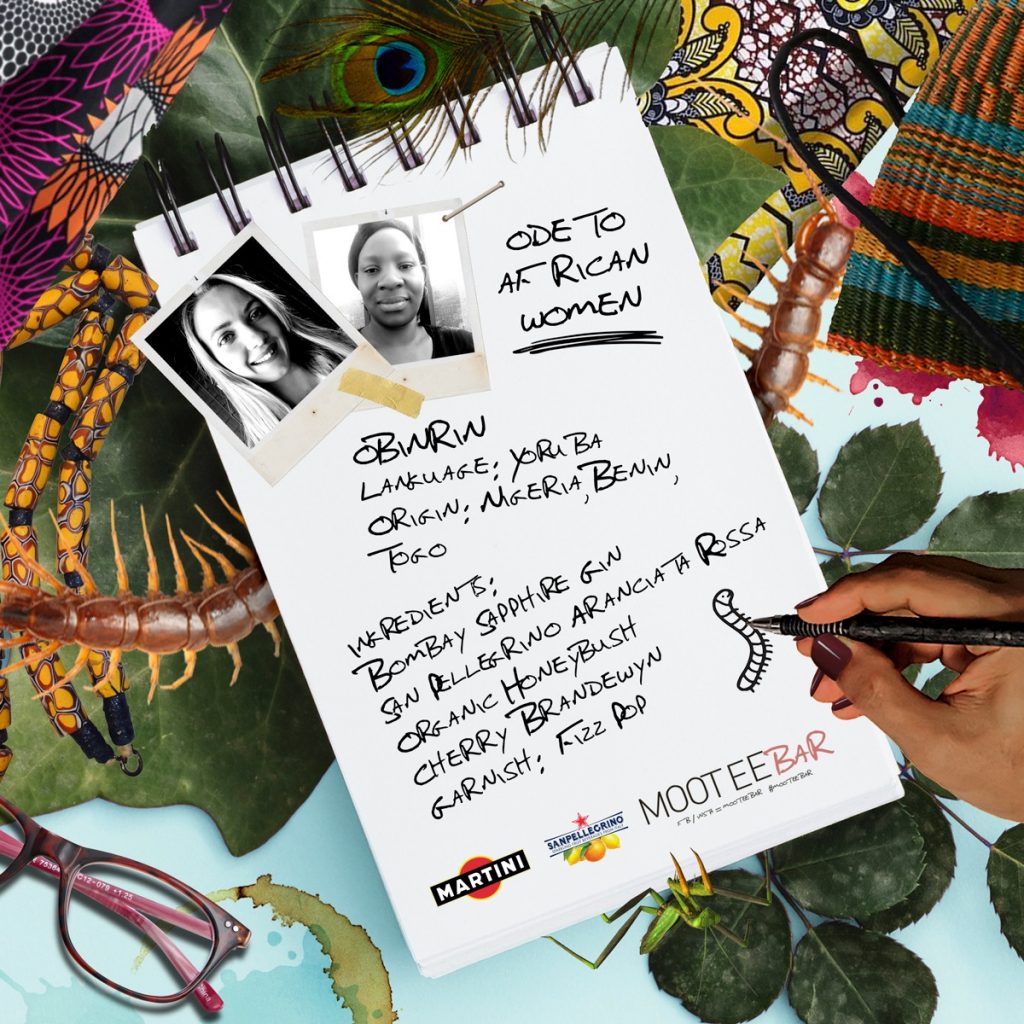 ODE TO
AFRICAN
WOMEN
OBINRIN
LANGUAGE: YORUBA
ORIGIN: NIGERIA, BENIN,
TOGO
INGREDIENTS:
BOMBAY SAPPHIRE GIN
SAN PELLEGRINO ARANCIATA ROSSA
ORGANIC HONEYBUSH
CHERRY BRANDEWYN
GARNISH: FIZZ POP
MOOTEEBAR
FB / INSTA = MOOTEEBAR @MOOTEEBAR
SANPELLEGRINO
MARTINI
C12-079 +1.25